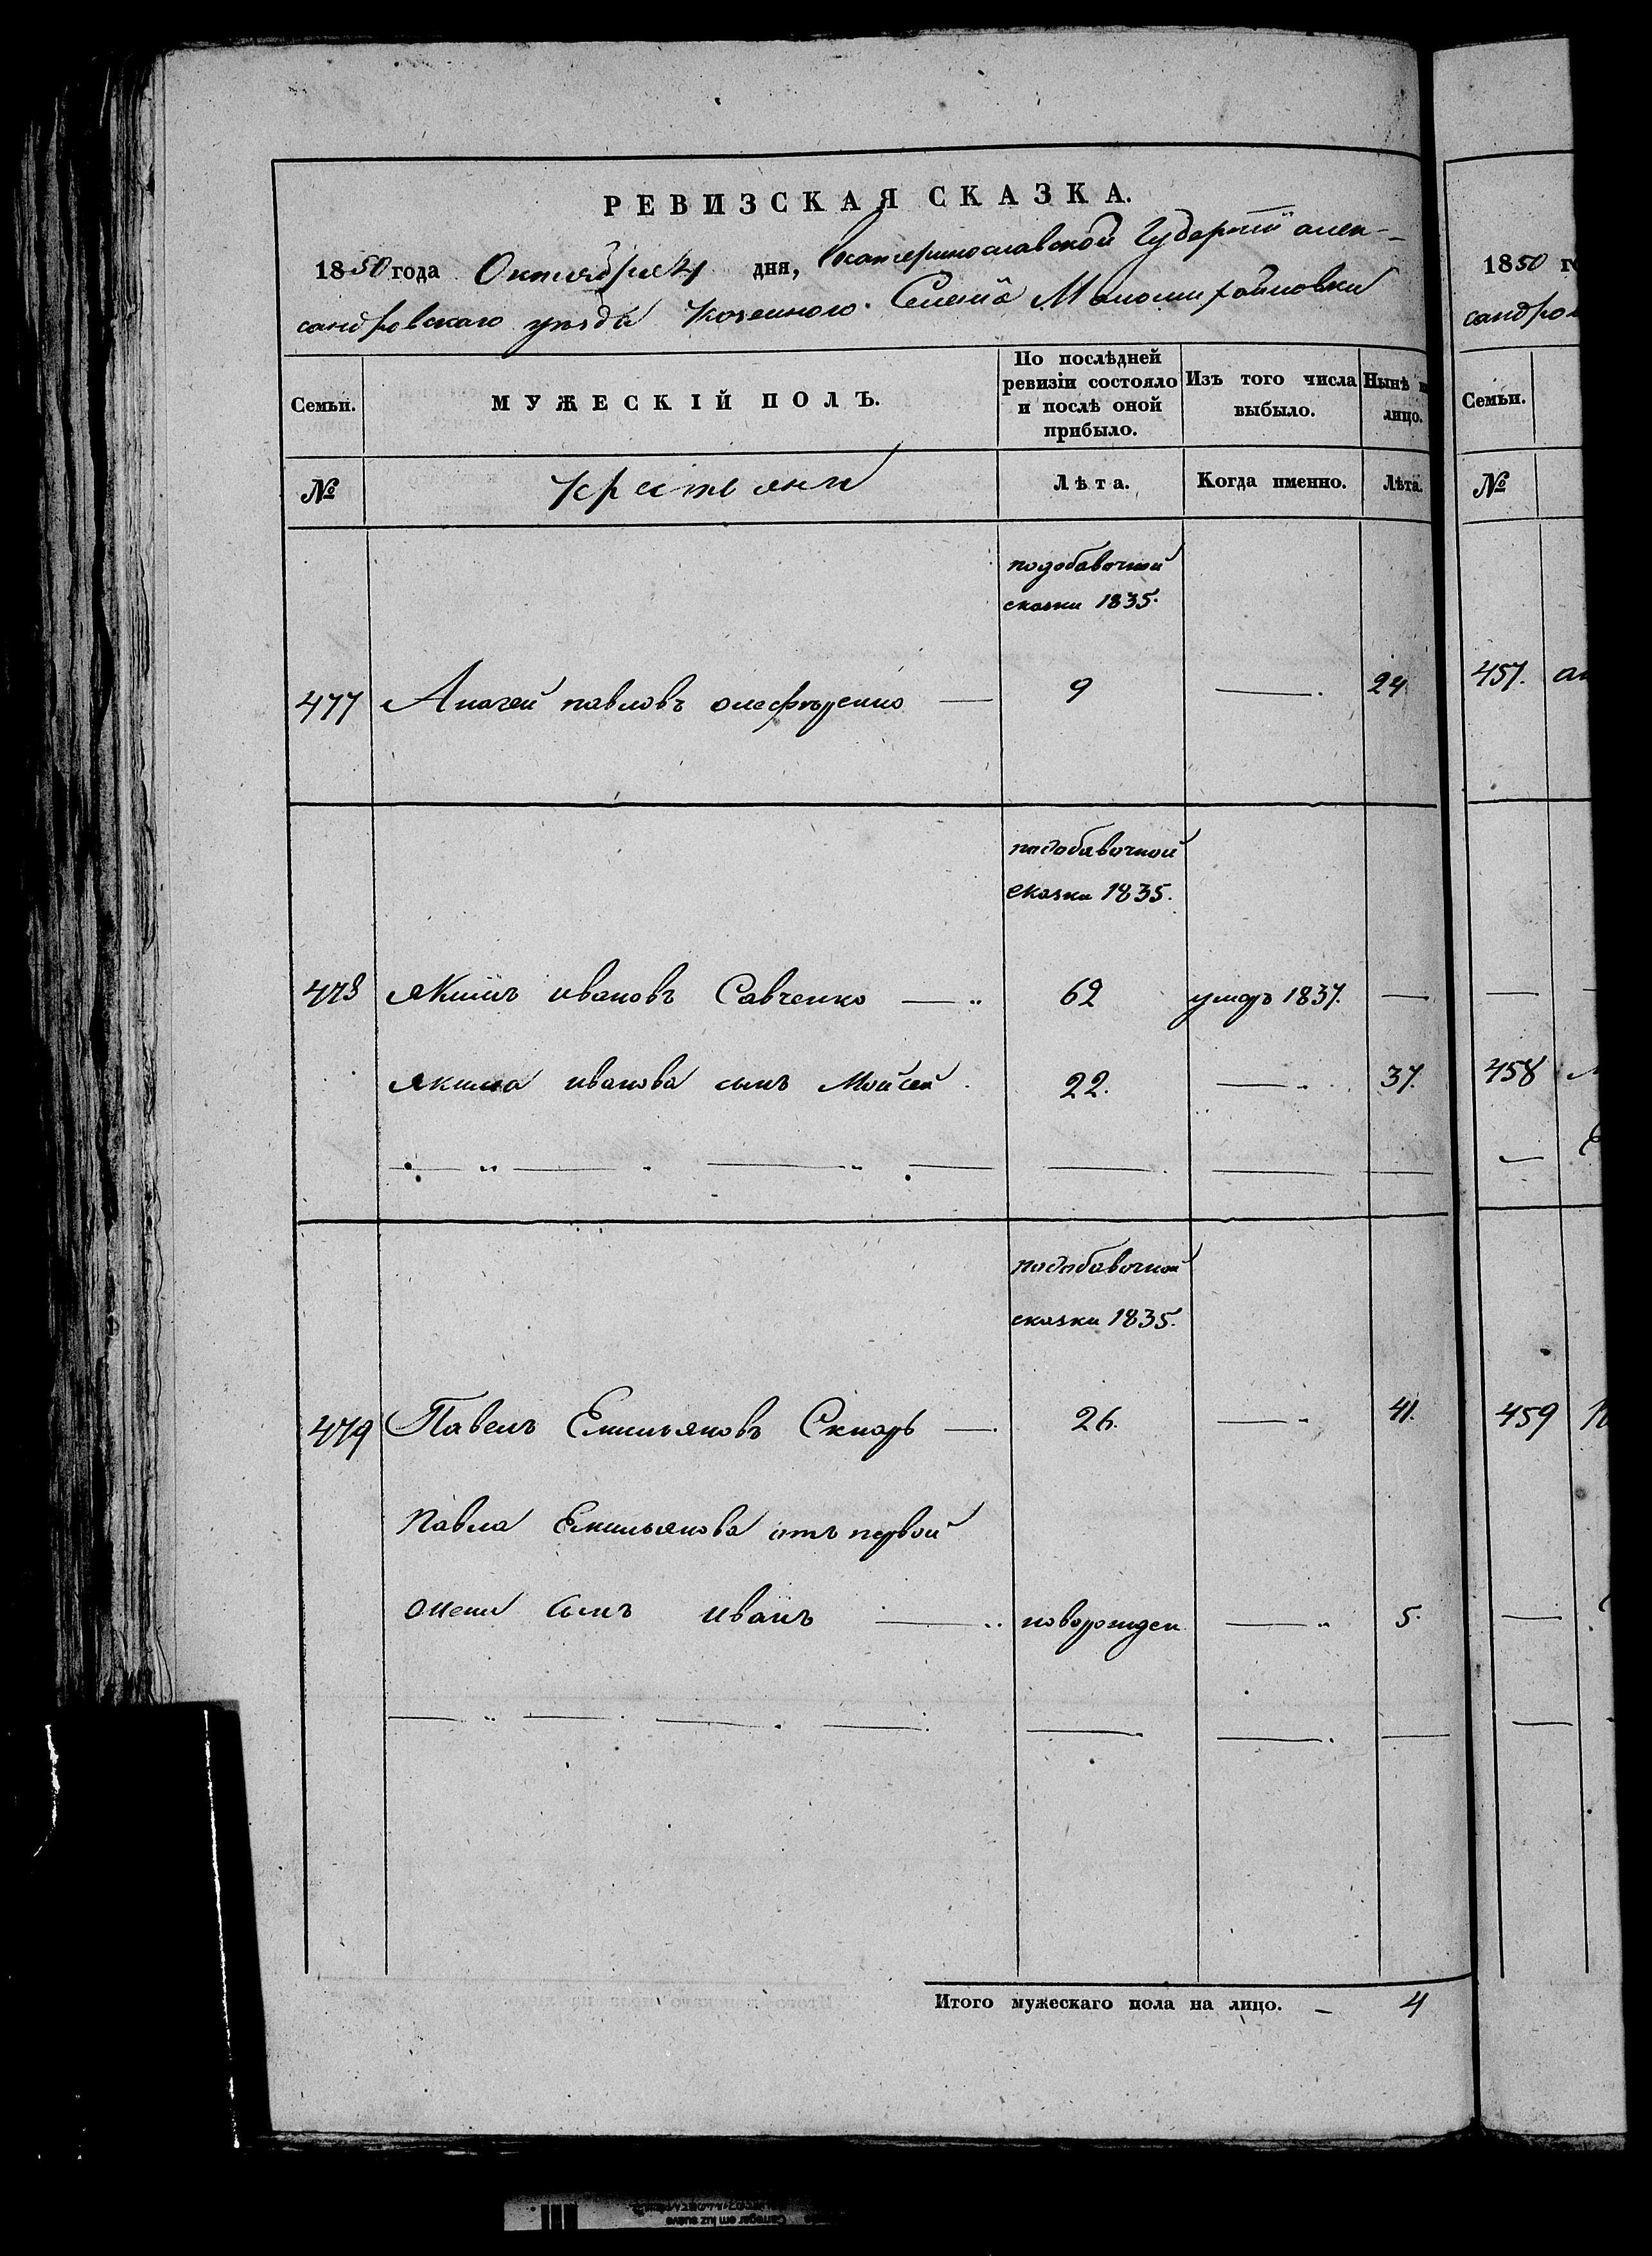 РЕВИЗСКАЯ СКАЗКА.
1850 года Октября 4 дня, Екатеринославской Губернии Алек-
сандровскаго уѣзда Казенного Селенiя Маломихайловки
Семьи. МУЖЕСКІЙ ПОЛЪ. По послѣдней ревизіи состояло и послѣ оной прибыло. Изъ того числа выбыло. Нынѣ н лицо.
№ крестьяни Лѣта. Когда именно. Лѣта.
подобавочной
сказки 1835.
477 павловъ — 9 — 24
подобавочной
сказки 1835.
478 Якимъ ивановъ Савченко — 62 умеръ 1837. —
Якима иванова сынъ Мойсей 22. — 37.
подобавочной
сказки 1835.
479 Павелъ Емильяновъ Скнарь — 26. — 41.
Павла Емильянова отъ первой
жени сынъ иванъ — новорожден — 5.
Итого мужескаго пола на лицо. — 4
1850 го
сандров
Семьи.
№
457. ан
—
458
—
459
—